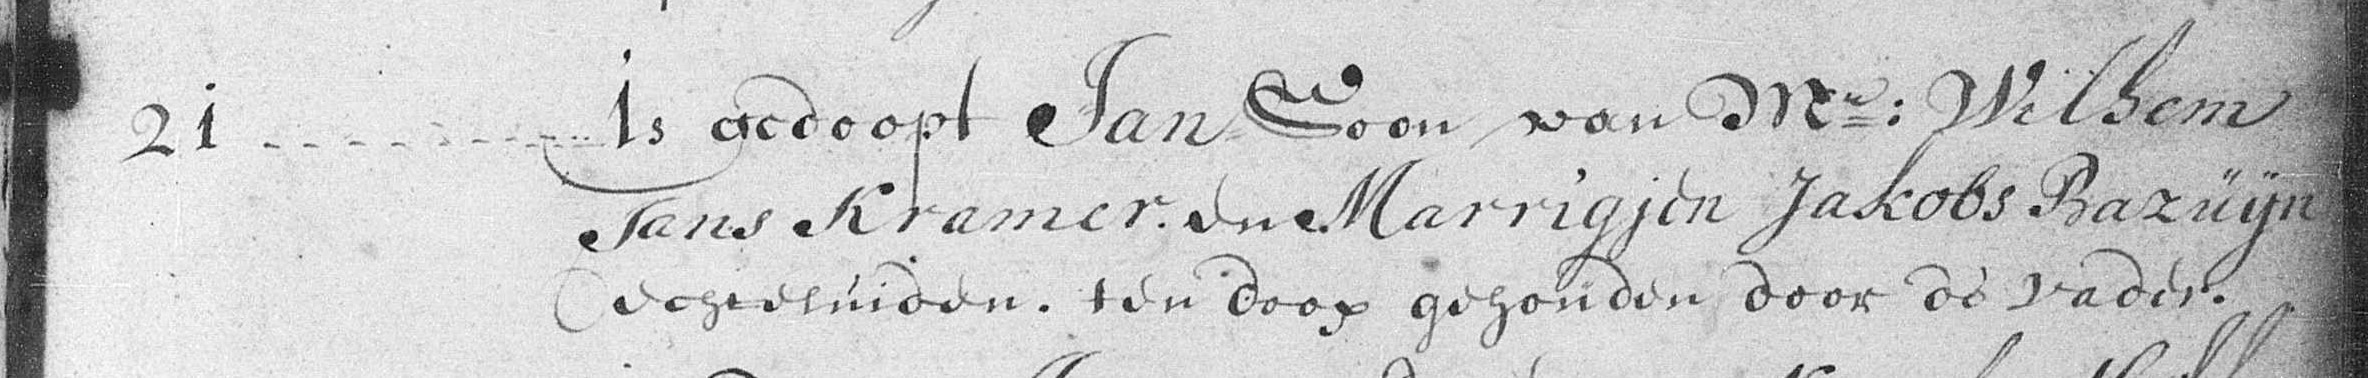 21 - - - - - - - - - - Is gedoopt Jan Soon van Mr: Wilhem
Jans Kramer. en Marrigjen Jakobs Bazüÿn
echteluiden. ten doop gehouden door de vader.